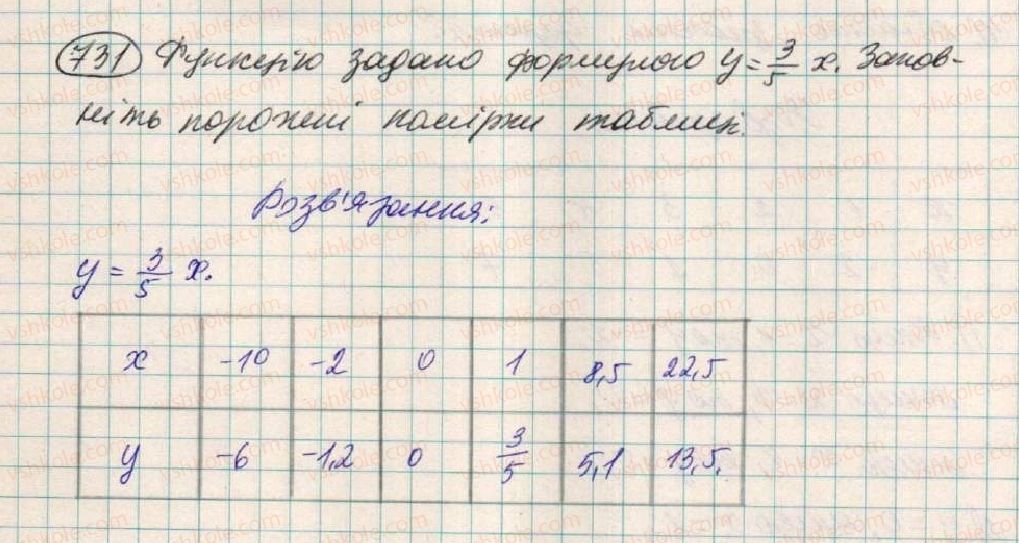 731 Функцію задано формулою y = 3/5 x. Запов-
ніть порожні комірки таблиці.
Розв'язання:
y = 3/5 x.
x -10 -2 0 1 8,5 22,5
y -6 -1,2 0 3/5 5,1 13,5.